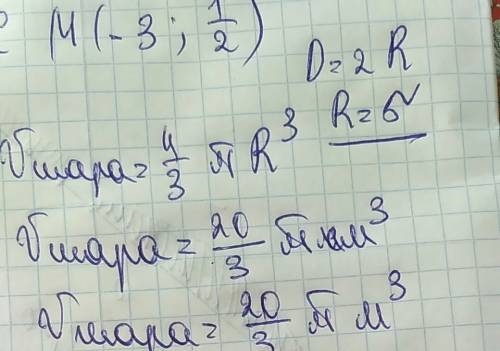 M (-3; 1/2)
D = 2 R
Vшара = 4/3 π R³
Vшара = 20/3 π км³
Vшара = 20/3 π м³